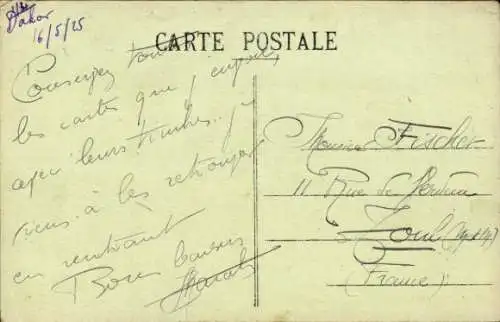 Dakar
16/5/25
CARTE POSTALE
Conservez tous
les cartes que j'envoie,
avec leurs timbres. je
tiens à les retrouver
en rentrant
Bons baisers
Monsieur Fischer
11 Rue de
Toul
(France)